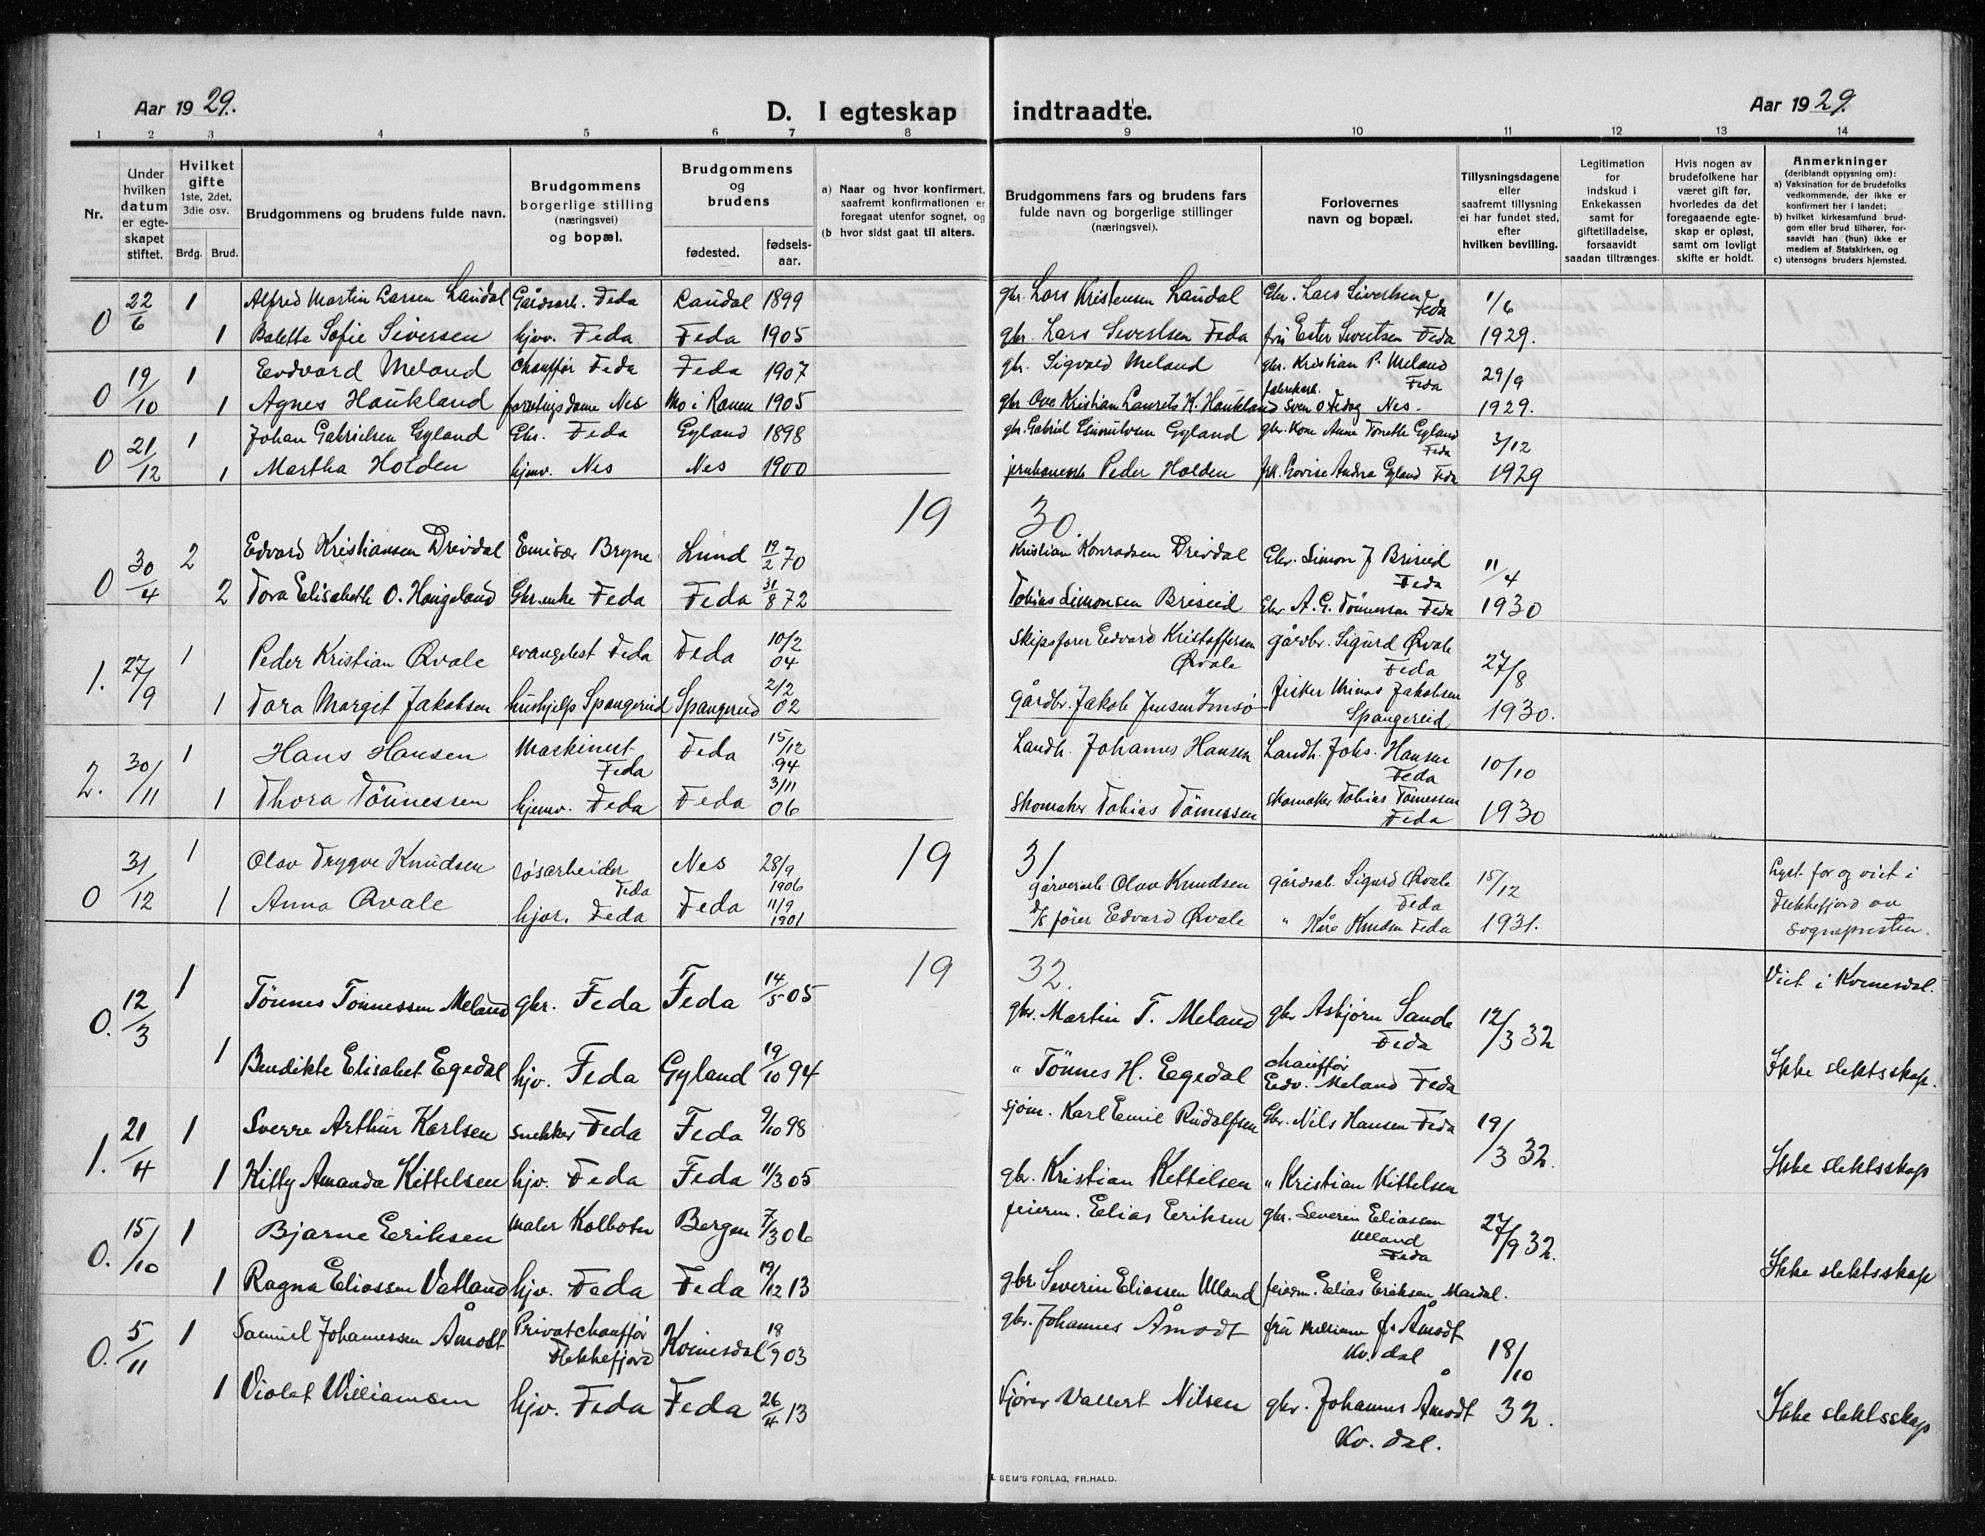 Aar 1929.
D. I egteskap indtraadte.
Aar 1929.
1 2 3 4 5 6 7 8 9 10 11 12 13 14
Nr.
Under hvilken datum er egteskapet stiftet.
Hvilket gifte 1ste, 2det, 3die osv.
Brdg. Brud.
Brudgommens og brudens fulde navn.
Brudgommens borgerlige stilling (næringsvei) og bopæl.
Brudgommens og brudens
fødested. fødselsaar.
a) Naar og hvor konfirmert, saafremt konfirmationen er foregaat utenfor sognet, og
(b hvor sidst gaat til alters.
Brudgommens fars og brudens fars fulde navn og borgerlige stillinger (næringsvei).
Forlovernes navn og bopæl.
Tillysningsdagene eller saafremt tillysning ei har fundet sted, efter hvilken bevilling.
Legitimation for indskud i Enkekassen samt for giftetilladelse, forsaavidt saadan tiltrænges.
Hvis nogen av brudefolkene har været gift før, hvorledes da det foregaaende egteskap er opløst, samt om lovligt skifte er holdt.
Anmerkninger (deriblandt oplysning om):
a) Vaksination for de brudefolks vedkommende, der ikke er konfirmert her i landet;
b) hvilket kirkesamfund brudgom eller brud tilhører, forsaavidt han (hun) ikke er medlem af Statskirken, og
c) utensogns bruders hjemsted.
0 22/6 1 Alfred Martin Larsen Laudal Gårdsarb. Feda Laudal 1899 gbr. Lars Kristensen Laudal Gbr. Lars Sivertsen Feda 1/6
1 Balette Sofie Siversen hjv. Feda Feda 1905 gbr. Lars Sivertsen Feda frü Ester Sivertsen Feda 1929.
0 19/10 1 Edvard Meland Chauffør Feda Feda 1907 gbr. Sigvald Meland gbr. Kristian P. Meland Feda 29/9
1 Agnes Haukland Nes Mo i Ranen 1905 gbr Ove Kristian Laurets K. Haukland fabrikarb. Sven O Fedog Nes. 1929.
0 21/12 1 Johan Gabrielsen Gyland Gbr. Feda Gyland 1898 gbr. Gabriel Gyland gbr. Kone Anne Tonette Gyland Feda 3/12
1 Martha Holden hjemv. Nes Nes 1900 Peder Holden frk. Lovise Andrea Gyland Feda 1929
19 30.
0 30/4 2 Edvard Kristiansen Dreivdal Emisær Bryne Lund 19/2 70 Kristian Konradsen Dreivdal Gbr. Simon J Briseid Feda 11/4
2 Tora Elisabeth O. Haugeland Gbr.enke Feda Feda 31/8 72 Tobias Simonsen Briseid Gbr A. G. Tönnessen Feda 1930
1. 27/9 1 Peder Kristian Øvale evangelist Feda Feda 10/2 04 Skipsfører Edvard Kristoffersen Øvale gårdbr. Sigurd Øvale Feda 27/8
1 Tora Margit Jakobsen hushjelp Spangereid Spangereid 2/2 02 gårdbr. Jakob Jensen fisker Jakobsen Spangereid 1930.
2. 30/11 1 Hans Hansen Maskinist Feda Feda 15/12 94 Landh. Johannes Hansen Landh. Johs. Hansen Feda 10/10
1 Thora Tönnessen hjemv. Feda Feda 3/11 06 Skomaker Tobias Tönnessen skomaker Tobias Tönnessen Feda 1930
19 31
0 31/12 1 Olav Trygve Knudsen løsarbeider Feda Nes 28/9 1906 Olav Knudsen gårdsarb. Sigurd Øvale Feda 15/12 Lyst for og viet i
1 Anna Øvale hjv. Feda Feda 11/9 1901 d/s fører Edvard Øvale " Kåre Knudsen Feda 1931. Flekkefjord av sognepresten.
19 32.
0. 12/3 1 Tönnes Tönnessen Meland gbr. Feda Feda 14/5 05 gbr. Martin T. Meland gbr Asbjørn Sande Feda 12/3 32 Viet i Kvinesdal.
1 Bendikte Elisabet Egedal hjv. Feda Gyland 19/10 94 " Tönnes H. Egedal chauffør Edv. Meland Feda Ikke slektsskap.
1. 21/4 1 Sverre Arthur Karlsen snekker Feda Feda 9/10 98 sjøm. Karl Emil Rudolfsen Gbr. Nils Hansen Feda 19/3 32.
1 Kitty Amanda Kittelsen hjv. Feda Feda 11/3 05 gbr. Kristian Kettilsen " Kristian Kittelsen Ikke slektsskap
0. 15/10 1 Bjarne Eriksen maler Kolbotn Bergen 7/3 06 feierm. Elias Eriksen gbr. Severin Eliassen Uland Feda 27/9 32.
1 Ragna Eliassen Vatland hjv. Feda Feda 19/12 13 gbr Severin Eliassen Uland feierm. Elias Eriksen Mandal. Ikke slektsskap
0. 5/11 1 Samuel Johannessen Åmodt Privatchauffør Flekkefjord Kvinesdal 18/9 03 gbr. Johannes Åmodt frü Åmodt Kv. dal 18/10
1 Violet Williamsen hjv. Feda Feda 26/4 13 Vallert Nilsen gbr. Johannes Åmodt Kv. dal. 32. Ikke slektsskap
SEM'S FORLAG, FR.HALD.